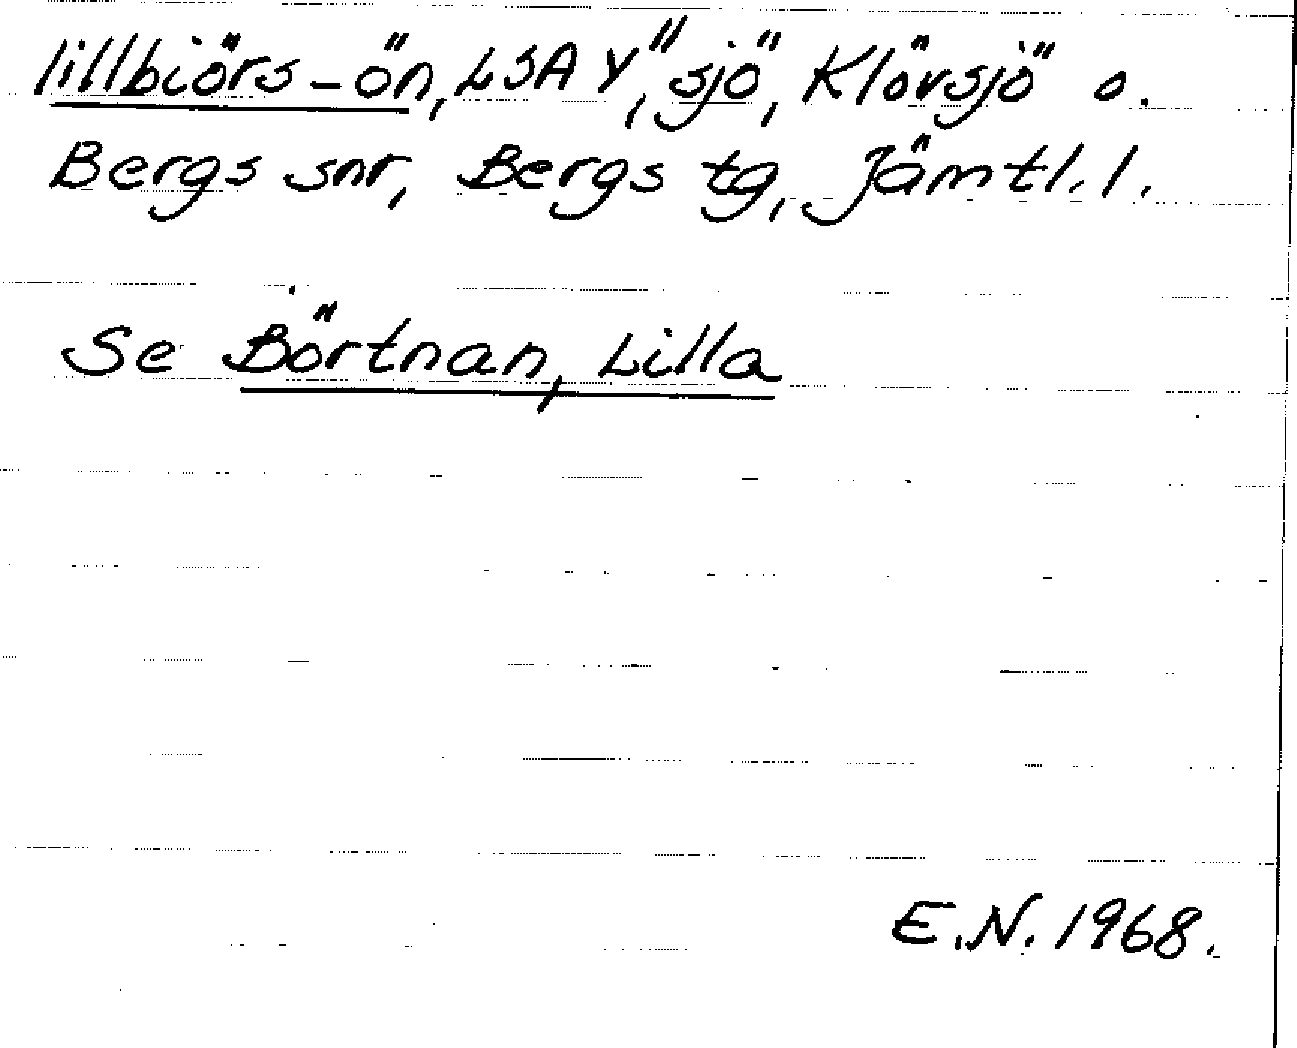 lillbiörs-ön, LSA Y, "sjö", Klövsjö o.
Bergs snr, Bergs tg, Jämtl. l.
Se Börtnan, Lilla
E.N. 1968.